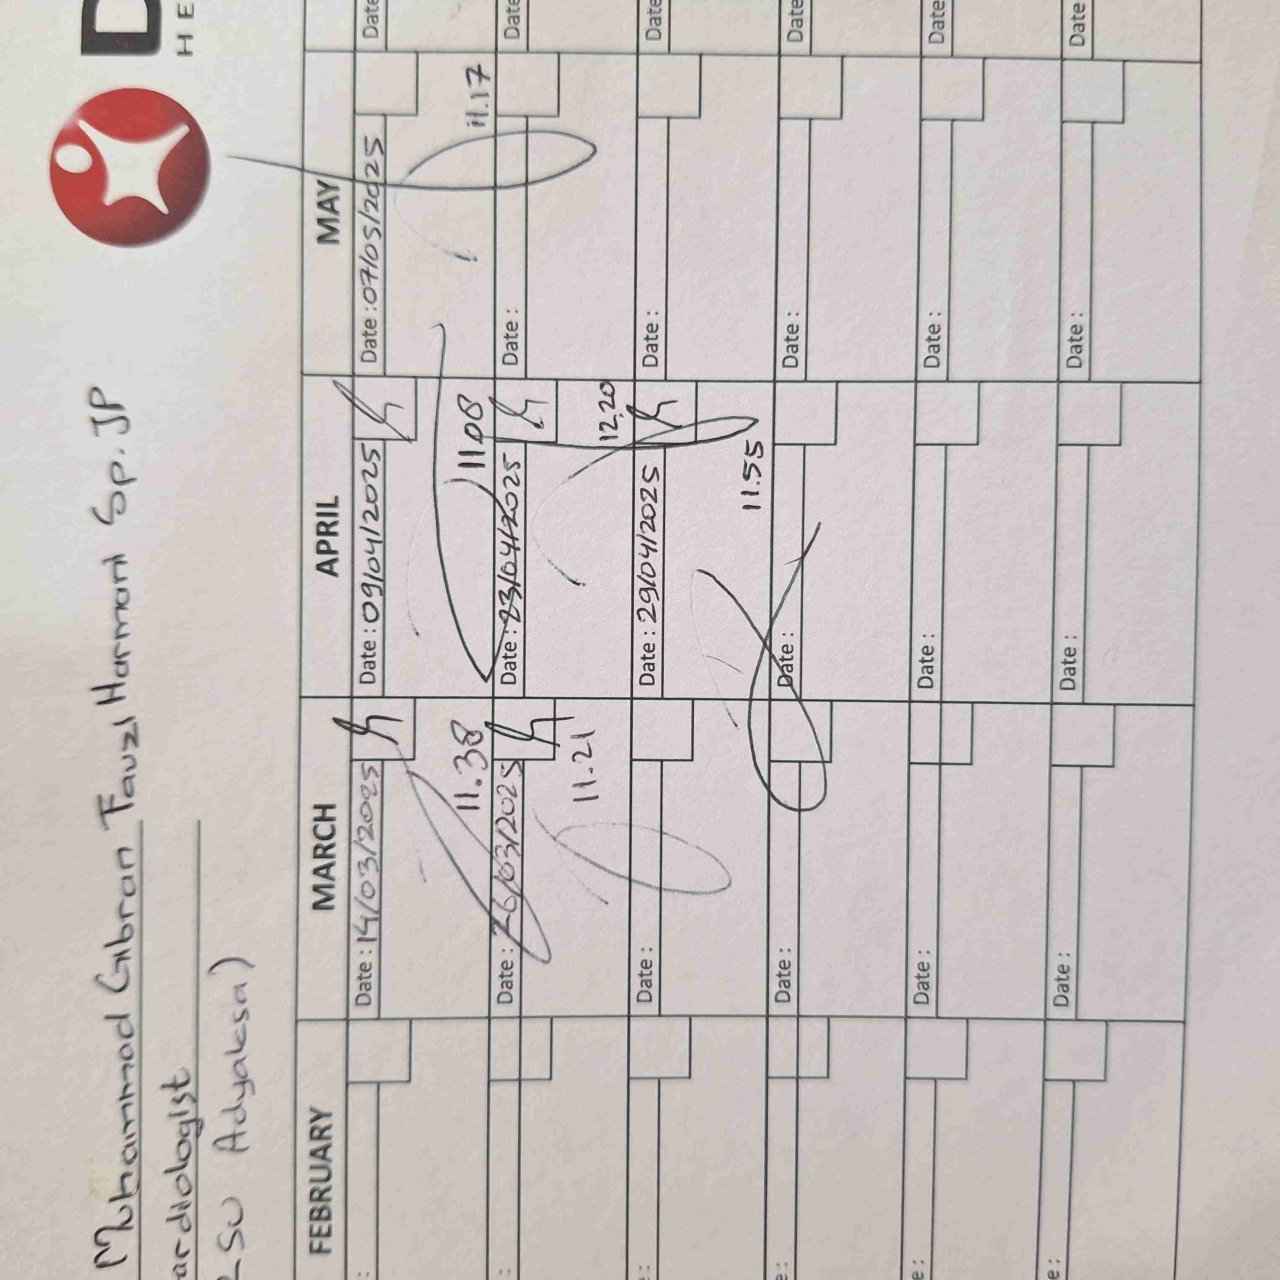 D
HE
Muhammad Gibran Fauzi Harmani Sp.JP
ardiologist
RSU Adyaksa)
FEBRUARY MARCH APRIL MAY
: Date : 14/03/2025 Date : 09/04/2025 Date : 07/05/2025 Date
11.38 11.08 11.17
: Date : 26/03/2025 Date : 23/04/2025 Date : Date
11.21 12.20
: Date : Date : 29/04/2025 Date : Date
11.55
: Date : Date : Date : Date
: Date : Date : Date : Date
: Date : Date : Date : Date